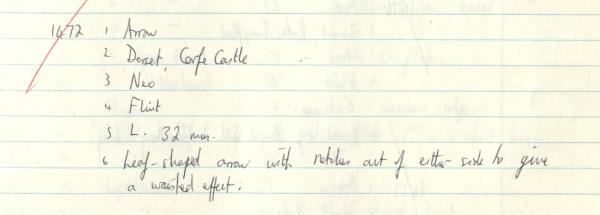 1472 1 Arrow
2 Dorset, Corfe Castle
3 Neo
4 Flint
5 L. 32 mm.
6 Leaf-shaped arrow with notches out of either side to give
a waisted effect.